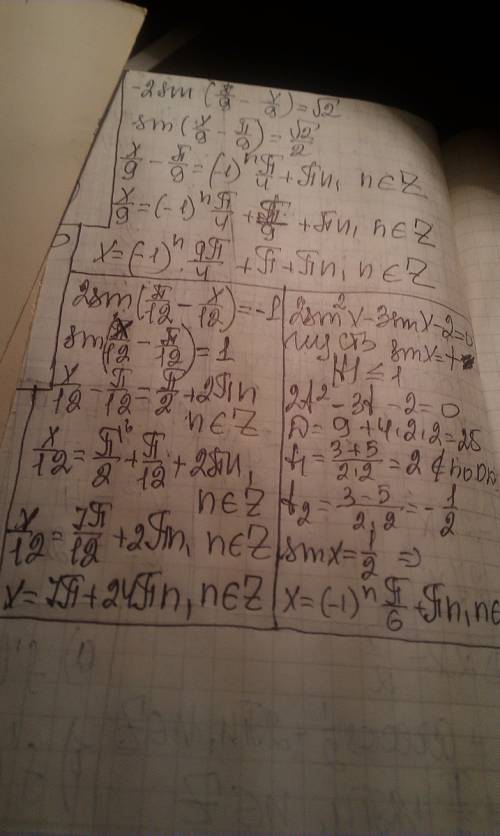 -2sin(π/9 - x/9)=√2
sin(x/9 - π/9)=√2/2
x/9 - π/9=(-1)ⁿ π/4 +πn, n∈Z
x/9=(-1)ⁿ π/4 + π/9 +πn, n∈Z
x=(-1)ⁿ · 9π/4 +π+πn, n∈Z
2sin(π/12 - x/12)=-1
sin(x/12 - π/12)=1
x/12 - π/12=π/2+2πn
n∈Z
x/12=π/2+π/12+2πn,
n∈Z
x/12=7π/12+2πn, n∈Z
x=7π+24πn, n∈Z
2sin²x-3sinx-2=0
пусть sinx=t
|t|≤1
2t²-3t-2=0
D=9+4·2·2=25
t₁=(3+5)/(2·2)=2
t₂=(3-5)/(2·2)=-1/2
sinx=1/2 ⇒
x=(-1)ⁿ π/6+πn, n∈